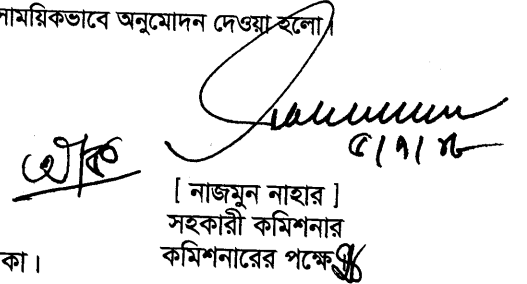 সাময়িকভাবে অনুমোদন দেওয়া হলো।
[ নাজমুন নাহার ]
সহকারী কমিশনার
কমিশনারের পক্ষে
কা।